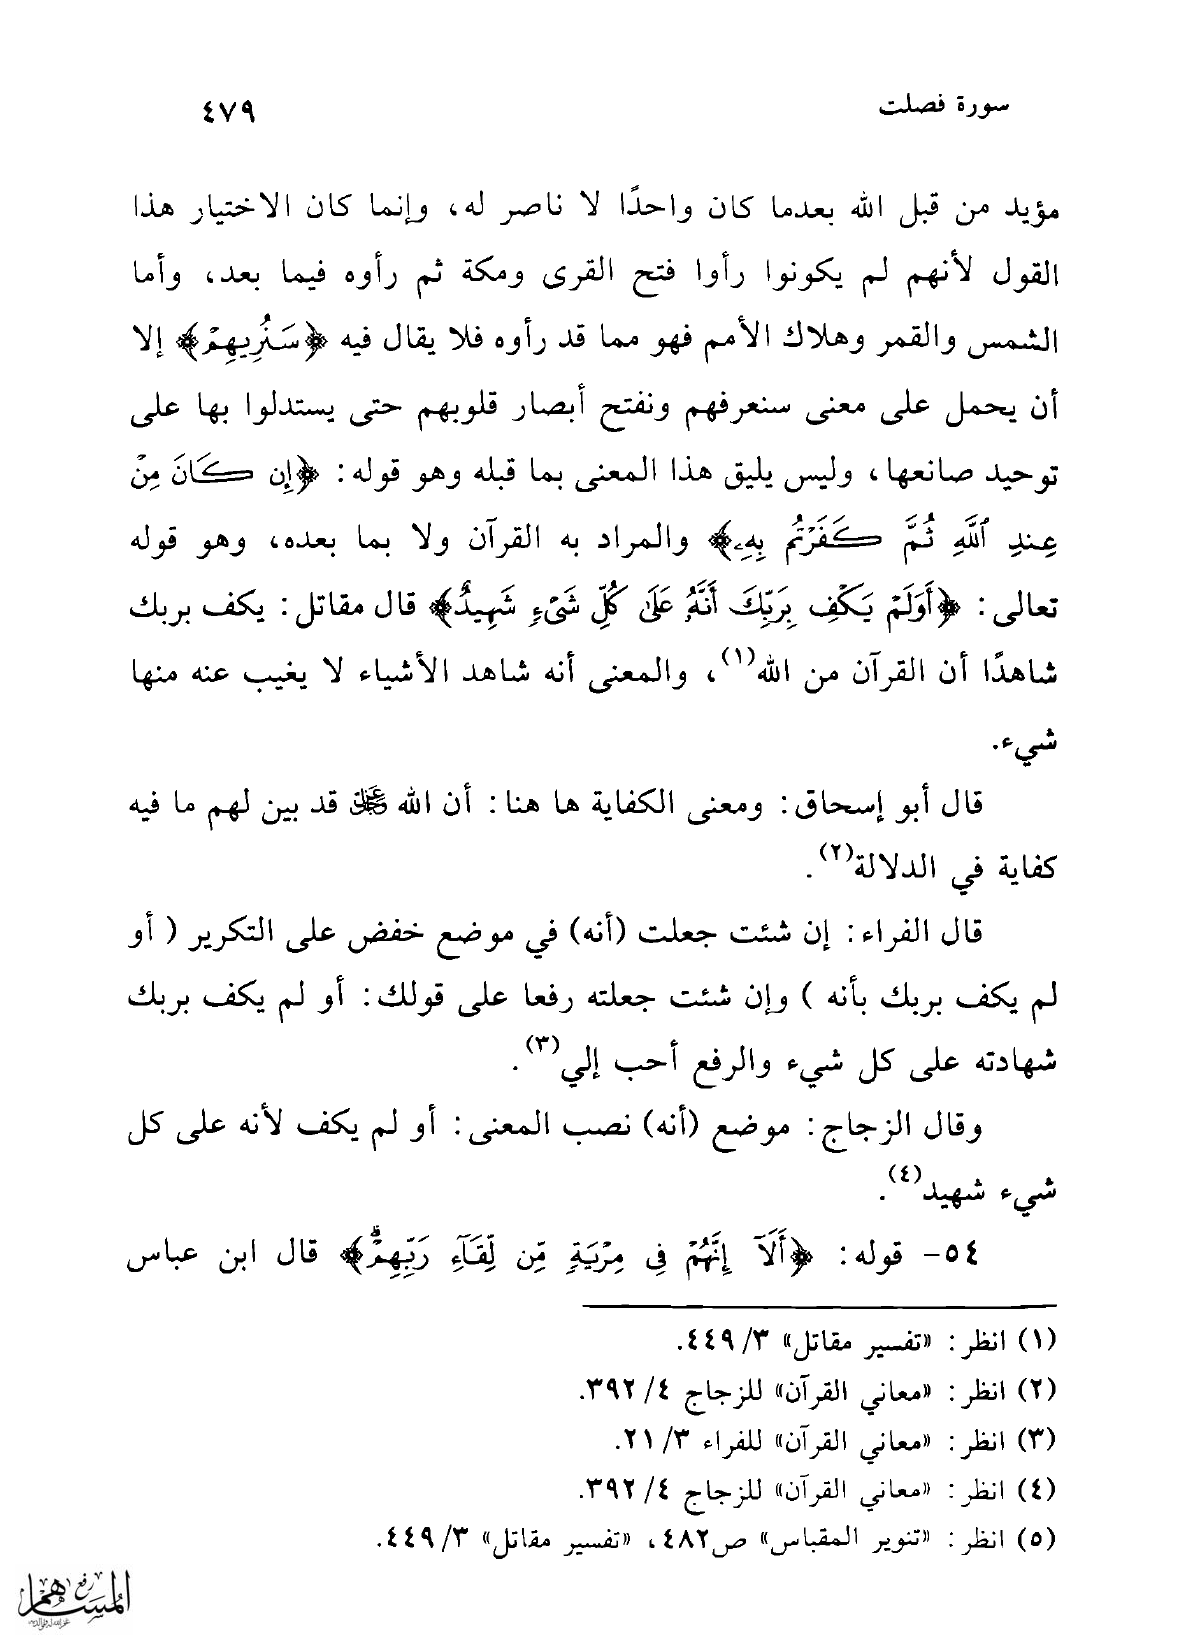 سورة فصلت ٤٧٩
مؤيد من قبل الله بعدما كان واحدًا لا ناصر له، وإنما كان الاختيار هذا
القول لأنهم لم يكونوا رأوا فتح القرى ومكة ثم رأوه فيما بعد، وأما
الشمس والقمر وهلاك الأمم فهو مما قد رأوه فلا يقال فيه ﴿سَنُرِيهِمْ﴾ إلا
أن يحمل على معنى سنعرفهم ونفتح أبصار قلوبهم حتى يستدلوا بها على
توحيد صانعها، وليس يليق هذا المعنى بما قبله وهو قوله: ﴿إِن كَانَ مِنْ
عِندِ ٱللَّهِ ثُمَّ كَفَرْتُم بِهِۦ﴾ والمراد به القرآن ولا بما بعده، وهو قوله
تعالى: ﴿أَوَلَمْ يَكْفِ بِرَبِّكَ أَنَّهُۥ عَلَىٰ كُلِّ شَىْءٍ شَهِيدٌ﴾ قال مقاتل: يكف بربك
شاهدًا أن القرآن من الله(١)، والمعنى أنه شاهد الأشياء لا يغيب عنه منها
شيء.
قال أبو إسحاق: ومعنى الكفاية ها هنا: أن الله ﷿ قد بين لهم ما فيه
كفاية في الدلالة(٢).
قال الفراء: إن شئت جعلت (أنه) في موضع خفض على التكرير ( أو
لم يكف بربك بأنه ) وإن شئت جعلته رفعا على قولك: أو لم يكف بربك
شهادته على كل شيء والرفع أحب إلي(٣).
وقال الزجاج: موضع (أنه) نصب المعنى: أو لم يكف لأنه على كل
شيء شهيد(٤).
٥٤- قوله: ﴿أَلَآ إِنَّهُمْ فِى مِرْيَةٍ مِّن لِّقَآءِ رَبِّهِمْ ۗ﴾ قال ابن عباس
(١) انظر: «تفسير مقاتل» ٣/ ٤٤٩.
(٢) انظر: «معاني القرآن» للزجاج ٤/ ٣٩٢.
(٣) انظر: «معاني القرآن» للفراء ٣/ ٢١.
(٤) انظر: «معاني القرآن» للزجاج ٤/ ٣٩٢.
(٥) انظر: «تنوير المقباس» ص٤٨٢، «تفسير مقاتل» ٣/ ٤٤٩.